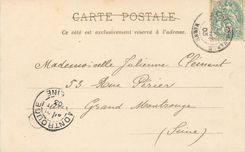 CARTE POSTALE
Ce côté est exclusivement réservé à l'adresse.
Mademoiselle Julienne Clément
53 Rue Périer
Grand Montrouge
(Seine)
MONTROUGE
SEINE